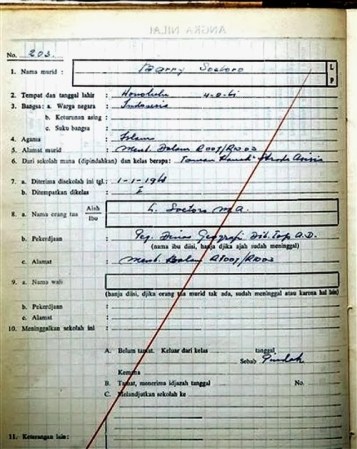 ANGKA NILAI
No. 203.
1. Nama murid : Barry Soetoro L P
2. Tempat dan tanggal lahir : Honolulu 4-8-61
3. Bangsa : a. Warga negara : Indonesia
b. Keturunan asing :
c. Suku bangsa :
4. Agama : Islam
5. Alamat murid : Ment. Dalam R007/R003
6. Dari sekolah mana (dipindahkan) dan kelas berapa :
7. a. Diterima disekolah ini tgl. : 1-1-1968
b. Ditempatkan dikelas : I
8. a. Nama orang tua Ajah Ibu : L. Soetoro M.A.
b. Pekerdjaan : Peg. Dinas Geografi Dit. Top. A.D.
(nama ibu diisi, hanja djika ajah sudah meninggal)
c. Alamat : Ment. Dalam R007/R003
9. a. Nama wali :
(hanja diisi, djika orang tua murid tak ada, sudah meninggal atau karena hal lain)
b. Pekerdjaan :
c. Alamat :
10. Meninggalkan sekolah ini :
A. Belum tamat. Keluar dari kelas tanggal
Sebab Pindah
Kemana
B. Tamat, menerima idjazah tanggal No.
C. Melandjutkan sekolah ke
11. Keterangan lain :